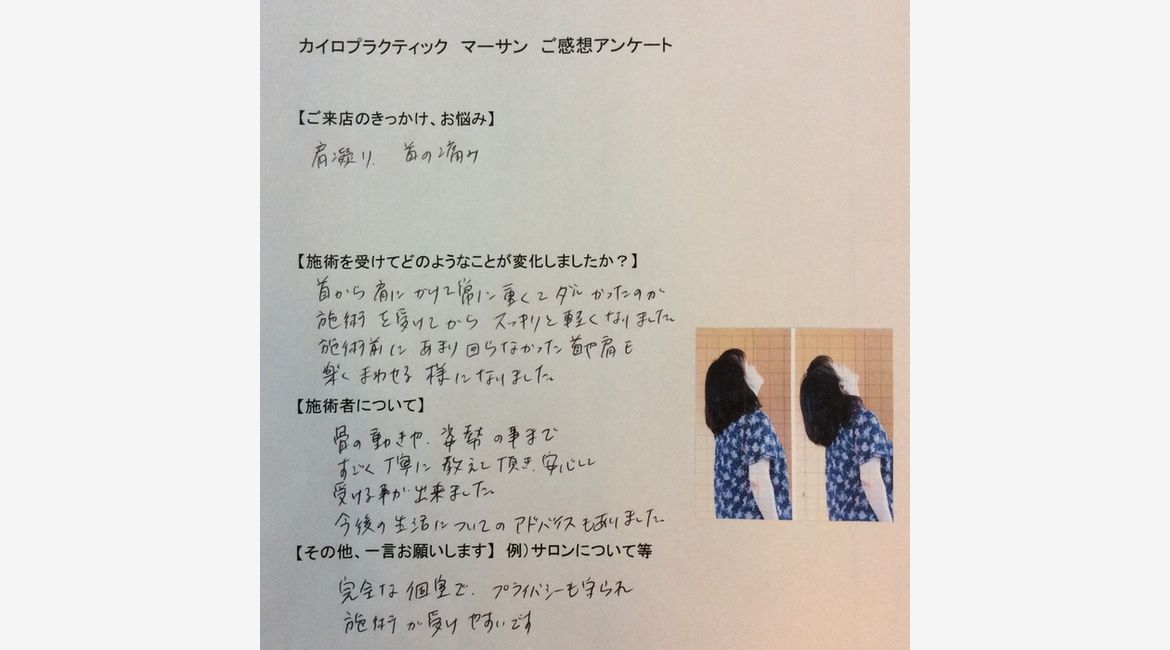 カイロプラクティック　マーサン　ご感想アンケート
【ご来店のきっかけ、お悩み】
肩凝り、首の痛み
【施術を受けてどのようなことが変化しましたか？】
首から肩にかけて常に重くてダルかったのが
施術を受けてからスッキリと軽くなりました。
施術前にあまり回らなかった首や肩も
楽くまわせる様になりました。
【施術者について】
骨の動きや、姿勢の事まで
すごく丁寧に教えて頂き、安心して
受ける事が出来ました。
今後の生活についてのアドバイスもありました。
【その他、一言お願いします】 例）サロンについて等
完全な個室で、プライバシーも守られ
施術が受けやすいです